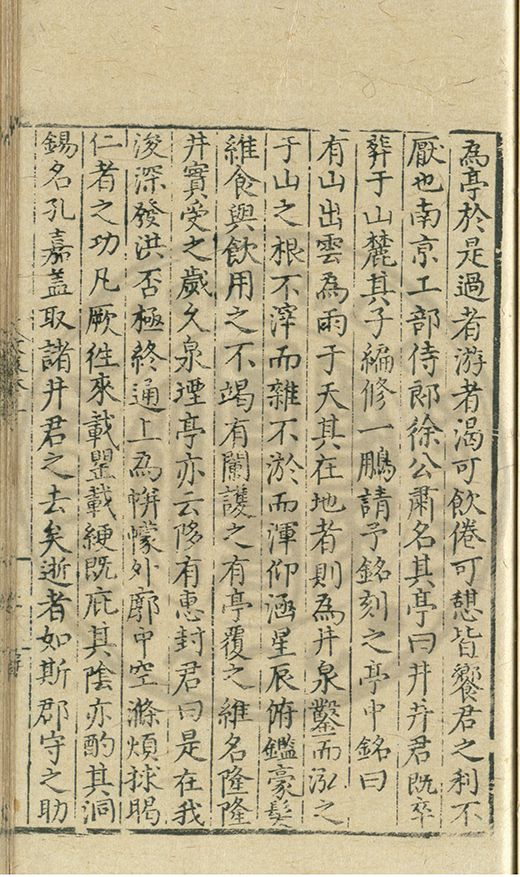 為亭於是過者游者渴可飲倦可憩皆饗君之利不
厭也南京工部侍郎徐公肅名其亭曰井井君既卒
葬于山麓其子編修一鵬請予銘刻之亭中銘曰
有山出雲為雨于天其在地者則為井泉鑿而泓之
于山之根不滓而雜不淤而渾仰涵星辰俯鑑豪髮
維食與飲用之不竭有闌護之有亭覆之維名隆隆
井實受之歲久泉堙亭亦云陊有惠封君曰是在我
浚深發洪否極終通上為帡幪外廓中空滌煩捄暍
仁者之功凡厥徃來載罌載綆既庇其陰亦酌其洞
錫名孔嘉盖取諸井君之去矣逝者如斯郡守之助